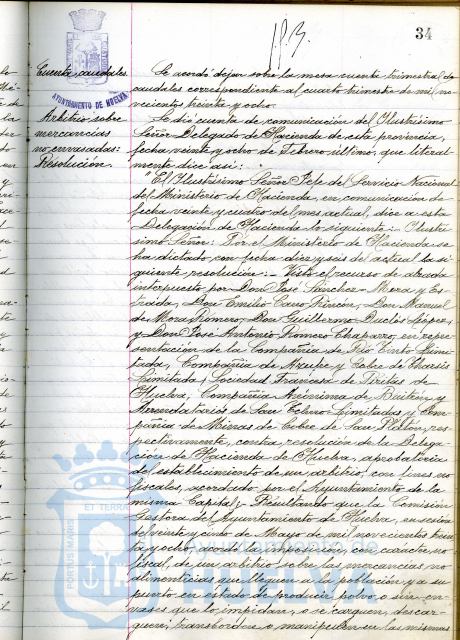 34
P.3.
AYUNTAMIENTO DE HUELVA
Cuenta caudales
Arbitrio sobre
mercancias
no envasadas:
Resolución.
Se acordó dejar sobre la mesa cuenta trimestral de
caudales correspondiente al cuarto trimestre de mil no-
vecientos treinta y ocho.
Se dió cuenta de comunicación del Ilustrísimo
Señor Delegado de Hacienda de esta provincia,
fecha veinte y ocho de Febrero último, que literal-
mente dice así:
"El Ilustrísimo Señor Jefe del Servicio Nacional
del Ministerio de Hacienda, en comunicación de
fecha veinte y cuatro del mes actual, dice a esta
Delegación de Hacienda lo siguiente:- Ilustrí-
simo Señor: Por el Ministerio de Hacienda se
ha dictado con fecha diez y seis del actual la si-
guiente resolución:- Visto el recurso de alzada
interpuesto por Don José Sánchez-Mora y
Don Emilio Cano Rincón, Don Manuel
de Mora Romero, Don Guillermo Duclós López,
y Don José Antonio Romero Chaparro, en repre-
sentación de la Compañia de Rio Tinto Limi-
tada, Compañia de Azufre y Cobre de Tharsis
Limitada, Sociedad Francesa de Piritas de
Huelva, Compañia Anónima de Buitrón y
Arrendatarios de San Telmo Limitadas y Com-
pañia de Minas de Cobre de San Platón, res-
pectivamente, contra resolución de la Delega-
ción de Hacienda de Huelva, aprobatoria
del establecimiento de un arbitrio, con fines no
fiscales, acordado por el Ayuntamiento de la
misma Capital; y Resultando que la Comisión
Gestora del Ayuntamiento de Huelva, en sesión
del veinte y cinco de Mayo de mil novecientos trein-
ta y ocho acordó la imposición, con caracter no
fiscal, de un arbitrio sobre las mercancias no
alimenticias que lleguen a la población y a su
puerto en estado de producir polvo o sin en-
vases que lo impidan, o se carguen, descar-
guen, transborden o manipulen en las mismas
ET TERRAE
PORTUS MARIS
Ayuntamiento de
HUELVA